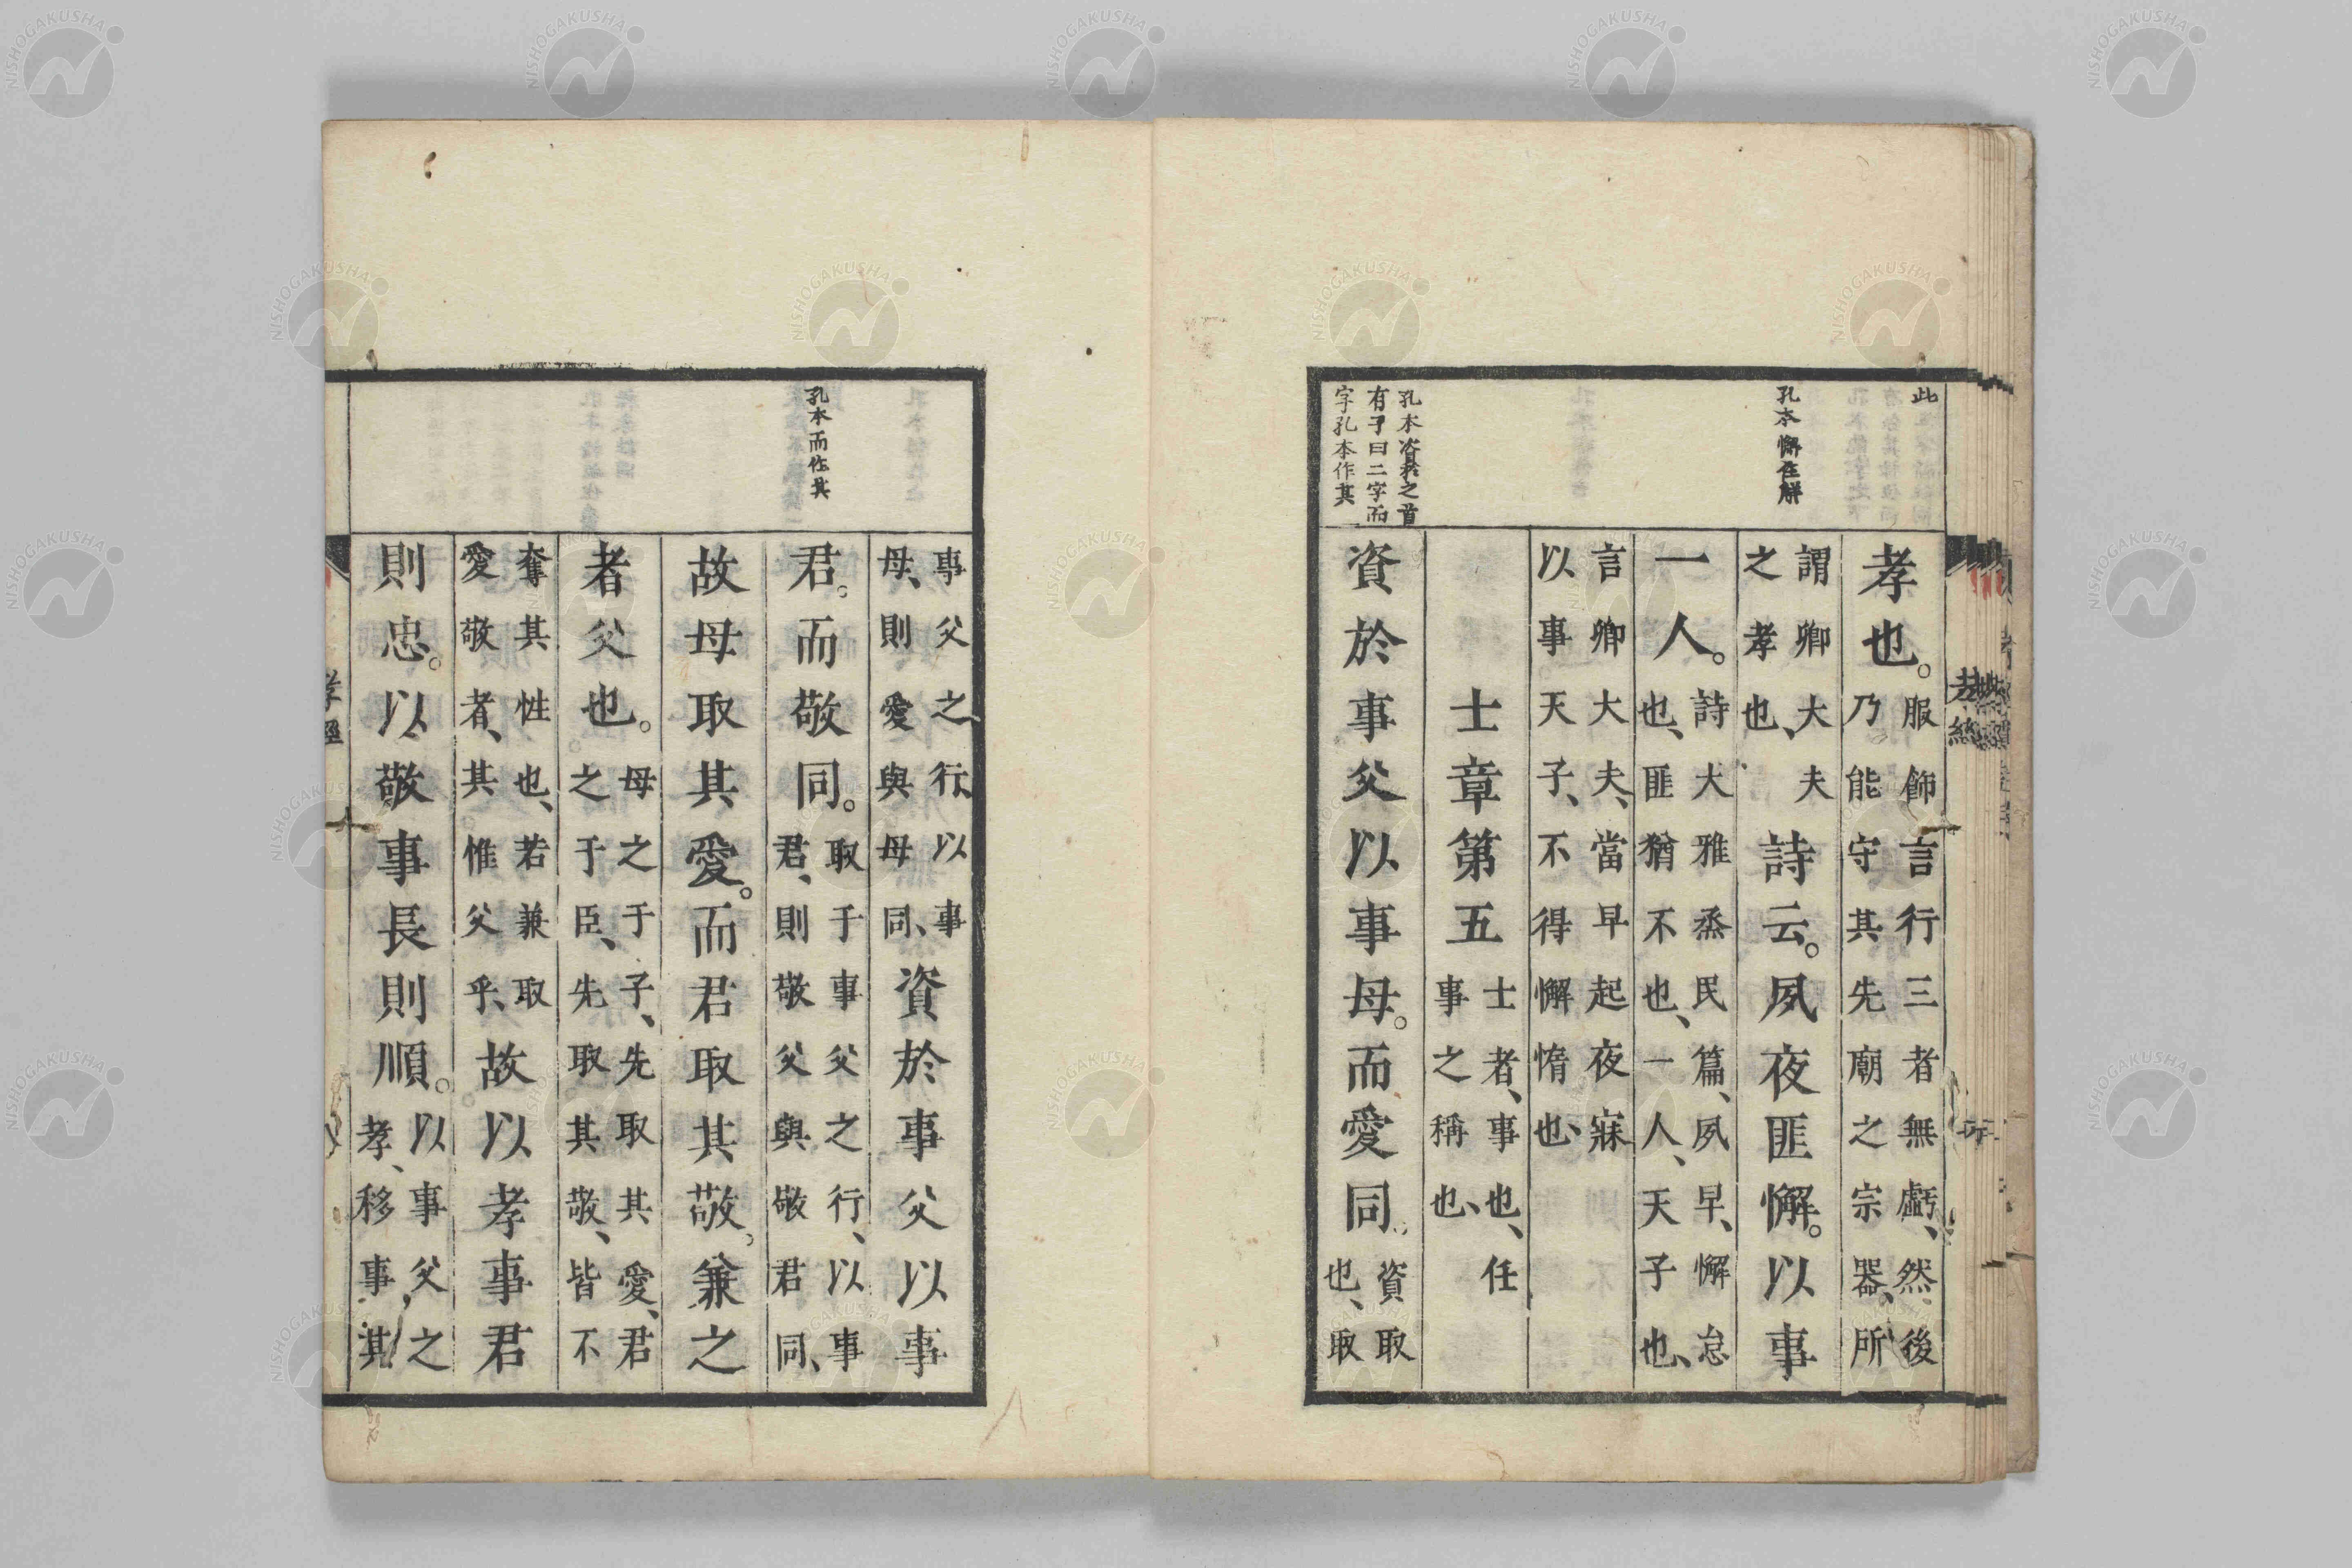 此
孔本懈作解
孔本資於之首
有子曰二字而
字孔本作其
孝也。服飾言行三者無虧、然後
乃能守其先廟之宗器、所
謂卿大夫
之孝也、詩云。夙夜匪懈。以事
一人。詩大雅烝民篇、夙早、懈怠
也、匪猶不也、一人、天子也、
言卿大夫、當早起夜寐
以事天子、不得懈惰也、
士章第五士者、事也、任
事之稱也、
資於事父以事母。而愛同。資取
也、取
孔本而作其
事父之行、以事
母、則愛與母同、資於事父以事
君。而敬同。取于事父之行、以事
君、則敬父與敬君同、
故母取其愛。而君取其敬。兼之
者父也。母之于子、先取其愛、君
之于臣、先取其敬、皆不
奪其性也、若兼取
愛敬者、其惟父乎、故以孝事君
則忠。以敬事長則順。以事父之
孝、移事其
孝經
NISHOGAKUSHA